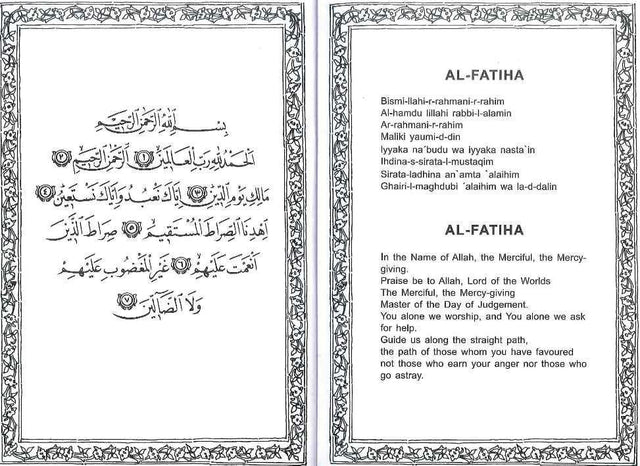 بسم الله الرحمن الرحيم
الحمد لله رب العالمين ١ الرحمن الرحيم ٢
مالك يوم الدين ٣ اياك نعبد واياك نستعين ٤
اهدنا الصراط المستقيم ٥ صراط الذين
انعمت عليهم ٦ غير المغضوب عليهم
ولا الضالين ٧
AL-FATIHA
Bismi-llahi-r-rahmani-r-rahim
Al-hamdu lillahi rabbi-l-alamin
Ar-rahmani-r-rahim
Maliki yaumi-d-din
Iyyaka na´budu wa iyyaka nasta`in
Ihdina-s-sirata-l-mustaqim
Sirata-ladhina an`amta `alaihim
Ghairi-l-maghdubi ´alaihim wa la-d-dalin
AL-FATIHA
In the Name of Allah, the Merciful, the Mercy-
giving.
Praise be to Allah, Lord of the Worlds
The Merciful, the Mercy-giving
Master of the Day of Judgement.
You alone we worship, and You alone we ask
for help.
Guide us along the straight path,
the path of those whom you have favoured
not those who earn your anger nor those who
go astray.